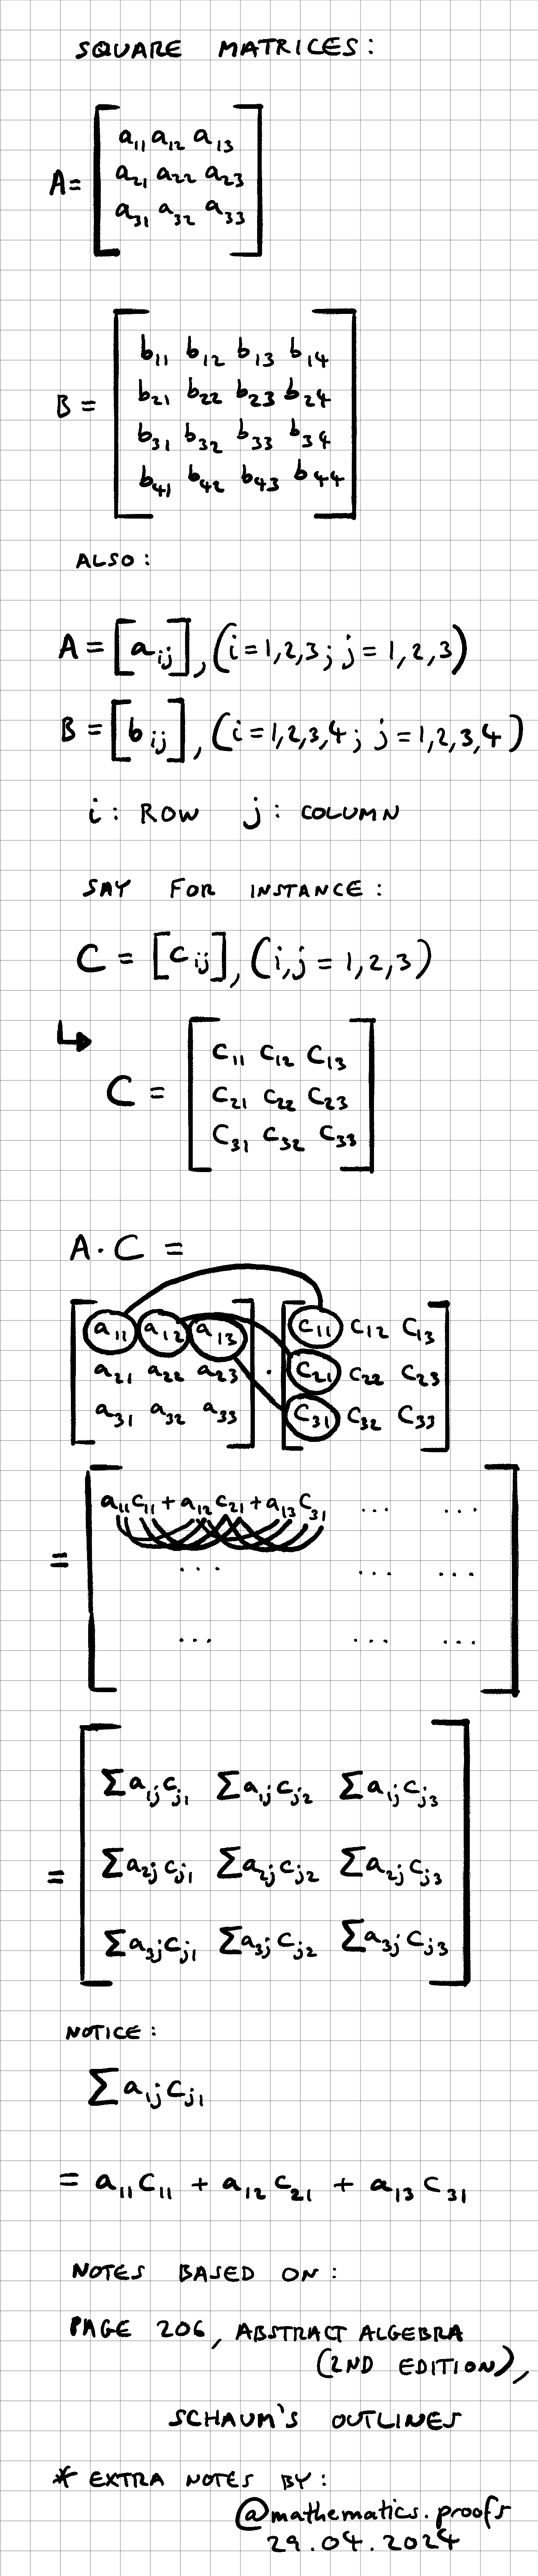 SQUARE MATRICES:
A= [a₁₁ a₁₂ a₁₃
a₂₁ a₂₂ a₂₃
a₃₁ a₃₂ a₃₃]
B = [b₁₁ b₁₂ b₁₃ b₁₄
b₂₁ b₂₂ b₂₃ b₂₄
b₃₁ b₃₂ b₃₃ b₃₄
b₄₁ b₄₂ b₄₃ b₄₄]
ALSO:
A = [aᵢⱼ], (i=1,2,3; j=1,2,3)
B = [bᵢⱼ], (i=1,2,3,4; j=1,2,3,4)
i: ROW j: COLUMN
SAY FOR INSTANCE:
C = [cᵢⱼ], (i,j = 1,2,3)
↳
C = [c₁₁ c₁₂ c₁₃
c₂₁ c₂₂ c₂₃
c₃₁ c₃₂ c₃₃]
A·C =
[a₁₁ a₁₂ a₁₃ c₁₁ c₁₂ c₁₃
a₂₁ a₂₂ a₂₃] · [c₂₁ c₂₂ c₂₃
a₃₁ a₃₂ a₃₃ c₃₁ c₃₂ c₃₃]
= [a₁₁c₁₁+a₁₂c₂₁+a₁₃c₃₁ ... ...
... ... ...
... ... ...]
= [Σa₁ⱼcⱼ₁ Σa₁ⱼcⱼ₂ Σa₁ⱼcⱼ₃
Σa₂ⱼcⱼ₁ Σa₂ⱼcⱼ₂ Σa₂ⱼcⱼ₃
Σa₃ⱼcⱼ₁ Σa₃ⱼcⱼ₂ Σa₃ⱼcⱼ₃]
NOTICE:
Σa₁ⱼcⱼ₁
= a₁₁c₁₁ + a₁₂c₂₁ + a₁₃c₃₁
NOTES BASED ON:
PAGE 206, ABSTRACT ALGEBRA
(2ND EDITION),
SCHAUM'S OUTLINES
* EXTRA NOTES BY:
@mathematics.proofs
29.04.2024